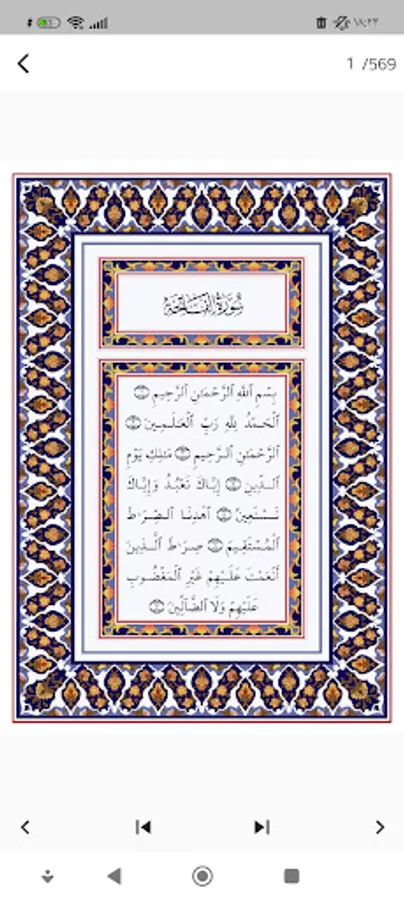 ١٨:٢٢
1 /569
سُورَةُ الْفَاتِحَةِ
بِسْمِ ٱللَّهِ ٱلرَّحْمَٰنِ ٱلرَّحِيمِ
ٱلْحَمْدُ لِلَّهِ رَبِّ ٱلْعَٰلَمِينَ
ٱلرَّحْمَٰنِ ٱلرَّحِيمِ مَٰلِكِ يَوْمِ
ٱلدِّينِ إِيَّاكَ نَعْبُدُ وَإِيَّاكَ
نَسْتَعِينُ ٱهْدِنَا ٱلصِّرَٰطَ
ٱلْمُسْتَقِيمَ صِرَٰطَ ٱلَّذِينَ
أَنْعَمْتَ عَلَيْهِمْ غَيْرِ ٱلْمَغْضُوبِ
عَلَيْهِمْ وَلَا ٱلضَّآلِّينَ